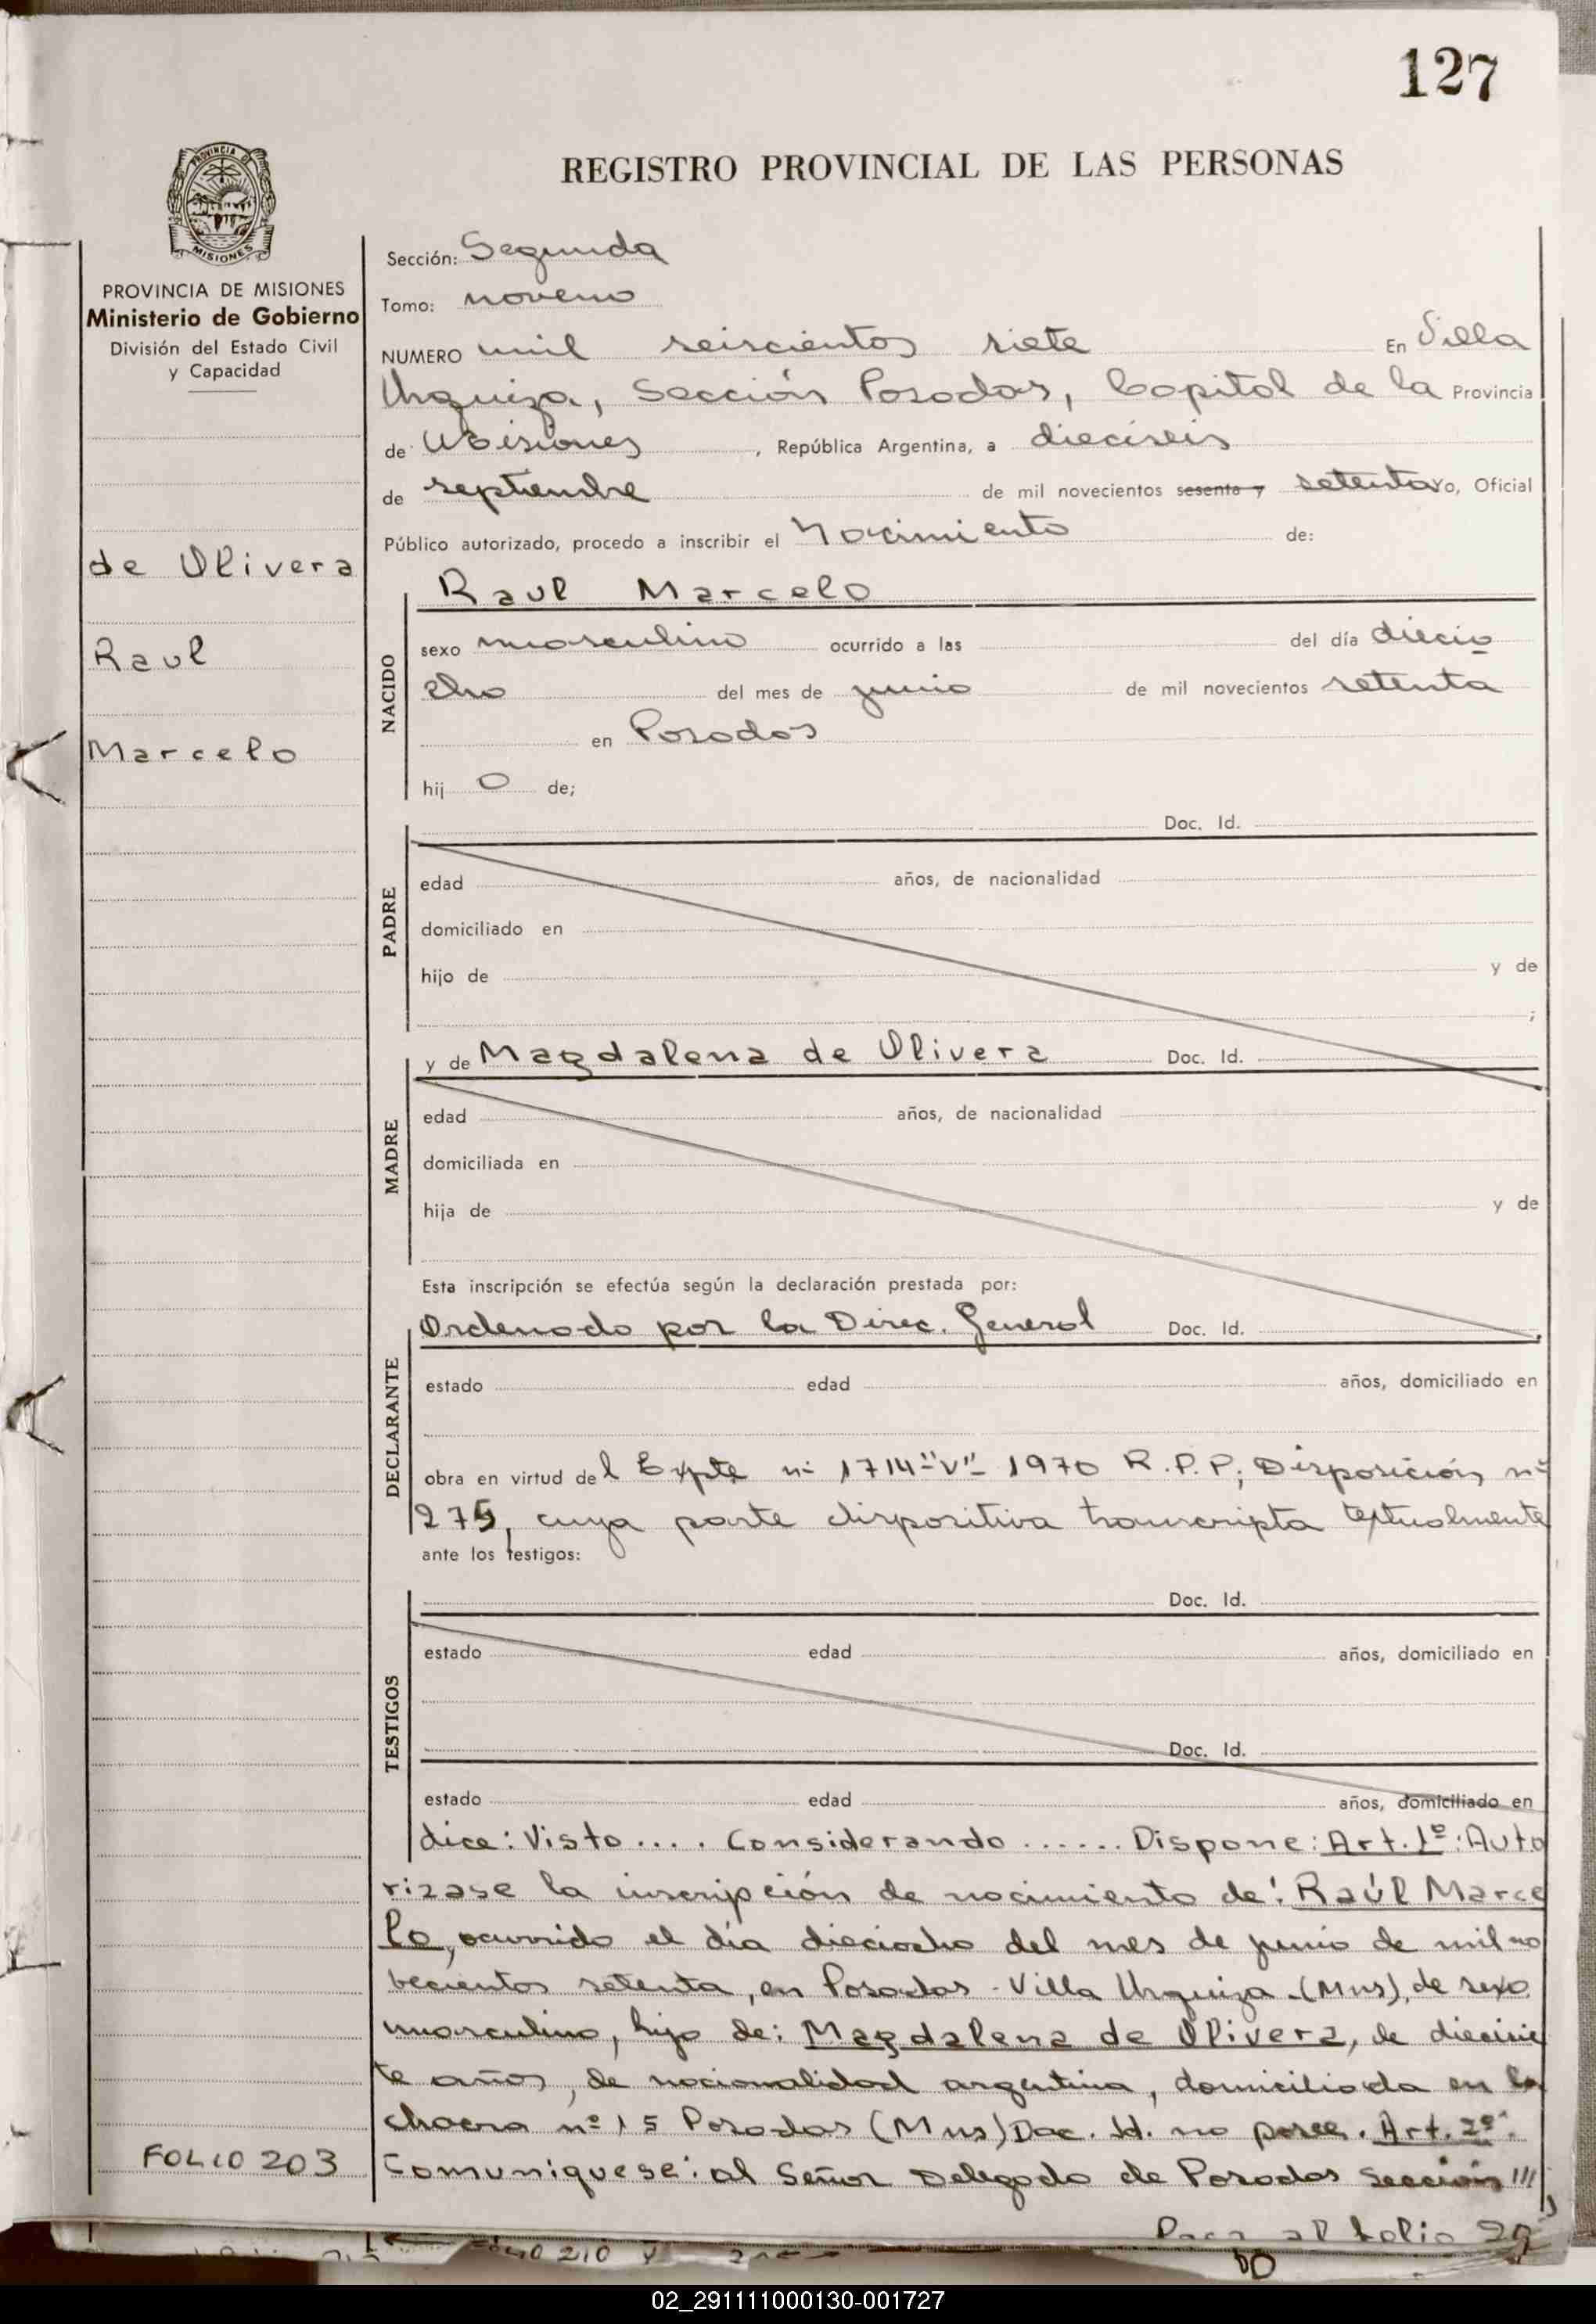 127
REGISTRO PROVINCIAL DE LAS PERSONAS
PROVINCIA DE MISIONES
Ministerio de Gobierno
División del Estado Civil
y Capacidad
de Olivera
Raul
Marcelo
FOLIO 203
Sección: Segunda
Tomo: noveno
NUMERO mil seiscientos siete En Villa
Urquiza, Sección Posadas, Capital de la Provincia
de Misiones, República Argentina, a dieciseis
de septiembre de mil novecientos sesenta y setenta yo, Oficial
Público autorizado, procedo a inscribir el Nacimiento de:
Raul Marcelo
NACIDO
sexo masculino ocurrido a las del día diecio
cho del mes de junio de mil novecientos setenta
en Posadas
hij o de;
PADRE
Doc. Id.
edad años, de nacionalidad
domiciliado en
hijo de y de
;
MADRE
y de Magdalena de Olivera Doc. Id.
edad años, de nacionalidad
domiciliada en
hija de y de
Esta inscripción se efectúa según la declaración prestada por:
DECLARANTE
Ordenado por la Direc. General Doc. Id.
estado edad años, domiciliado en
obra en virtud del Expte nº 1714-"V"- 1970 R.P.P; Disposición nº
275, cuya parte dispositiva transcripta textualmente
ante los testigos:
TESTIGOS
Doc. Id.
estado edad años, domiciliado en
Doc. Id.
estado edad años, domiciliado en
dice: Visto.... Considerando ...... Dispone: Art. 1º: Auto
rizase la inscripción de nacimiento de: Raúl Marce
lo, ocurrido el día dieciocho del mes de junio de mil no
vecientos setenta, en Posadas - Villa Urquiza -(Mns), de sexo
masculino, hijo de: Magdalena de Olivera, de diecisie
te años, de nacionalidad argentina, domiciliada en la
chacra nº 15 Posadas (Mns) Doc. Id. no posee. Art. 2º:
Comuniquese: al Señor Delegado de Posadas Sección
Pasa al folio
02_291111000130-001727